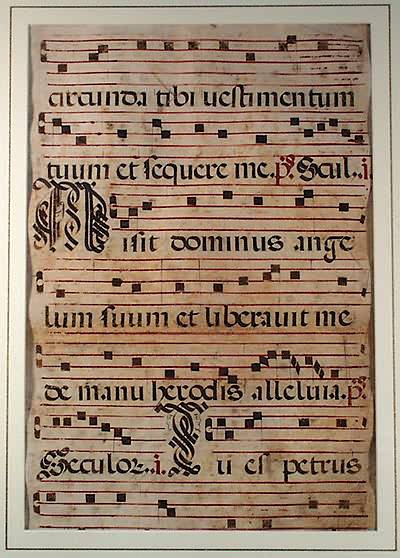 circunda tibi uestimentum
tuum et sequere me. ps. Scul..i.
Misit dominus ange
lum suum et liberauit me
de manu herodis alleluia. ps.
Seculor..i. Tu es petrus